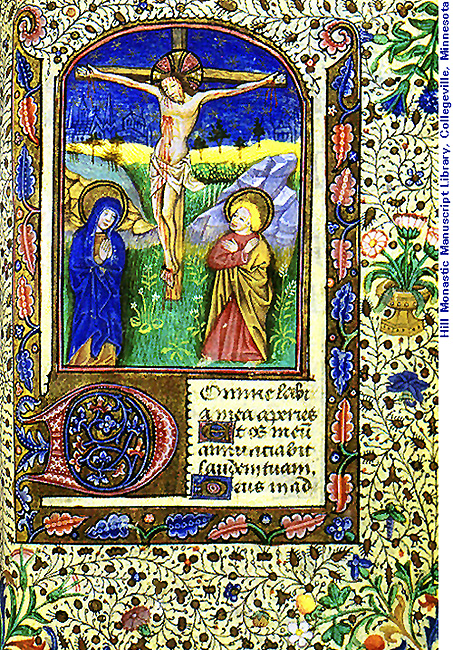 Domine labi
a mea aperies
Et os meū
annuciabit
laudem tuam.
Deus in ad
Hill Monastic Manuscript Library, Collegeville, Minnesota